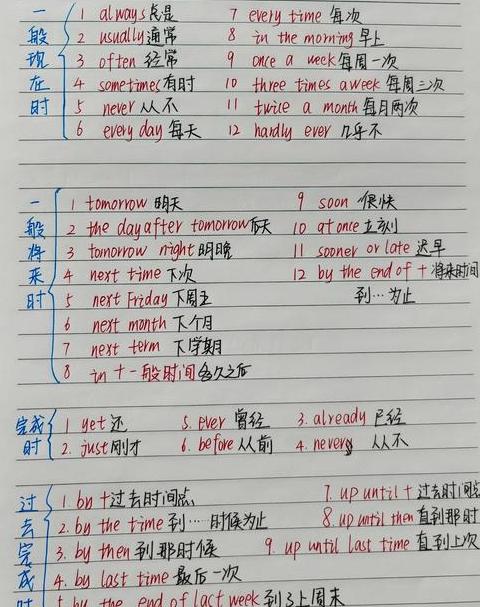 一般现在时
1 always 总是
2 usually 通常
3 often 经常
4 sometimes 有时
5 never 从不
6 every day 每天
7 every time 每次
8 in the morning 早上
9 once a week 每周一次
10 three times a week 每周三次
11 twice a month 每月两次
12 hardly ever 几乎不
一般将来时
1 tomorrow 明天
2 the day after tomorrow 后天
3 tomorrow night 明晚
4 next time 下次
5 next Friday 下周五
6 next month 下个月
7 next term 下学期
8 in + 一般时间 多久之后
9 soon 很快
10 at once 立刻
11 sooner or late 迟早
12 by the end of + 将来时间
到…为止
完成时
1 yet 还
2. just 刚才
5. ever 曾经
6. before 从前
3. already 已经
4. never 从不
过去完成时
1 by + 过去时间点
2. by the time 到…时候为止
3. by then 到那时候
4. by last time 最后一次
5. by the end of last week 到上周末
7. up until + 过去时间点
8. up until then 直到那时
9. up until last time 直到上次